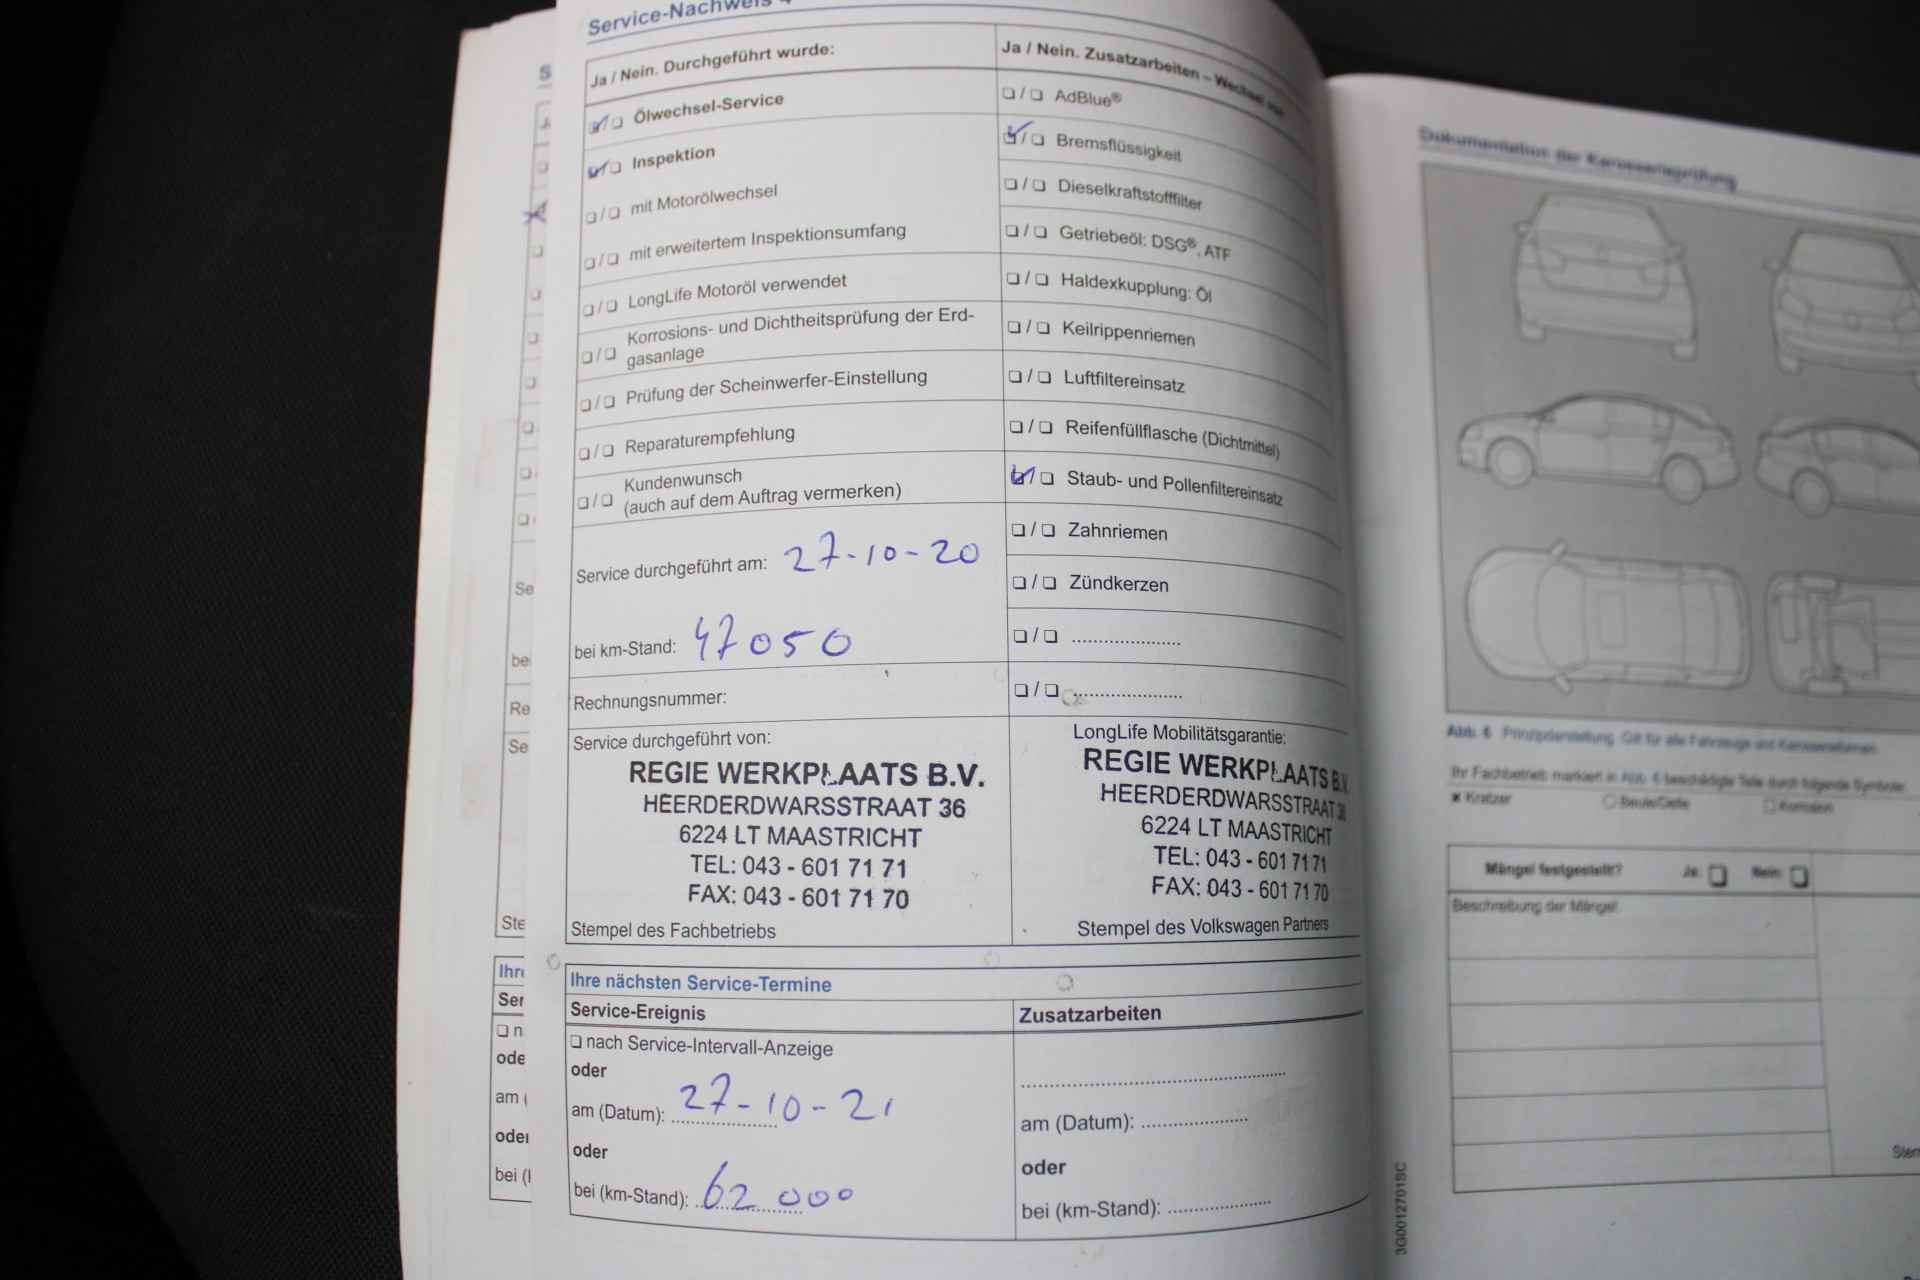 Service-Nachweis
Ja / Nein. Durchgeführt wurde:
❏/❏ Ölwechsel-Service
❏/❏ Inspektion
❏/❏ mit Motorölwechsel
❏/❏ mit erweitertem Inspektionsumfang
❏/❏ LongLife Motoröl verwendet
❏/❏ Korrosions- und Dichtheitsprüfung der Erd-
gasanlage
❏/❏ Prüfung der Scheinwerfer-Einstellung
❏/❏ Reparaturempfehlung
❏/❏ Kundenwunsch
(auch auf dem Auftrag vermerken)
Service durchgeführt am: 27-10-20
bei km-Stand: 47050
Rechnungsnummer:
Ja / Nein. Zusatzarbeiten – Wechsel von
❏/❏ AdBlue®
❏/❏ Bremsflüssigkeit
❏/❏ Dieselkraftstofffilter
❏/❏ Getriebeöl: DSG®, ATF
❏/❏ Haldexkupplung: Öl
❏/❏ Keilrippenriemen
❏/❏ Luftfiltereinsatz
❏/❏ Reifenfüllflasche (Dichtmittel)
❏/❏ Staub- und Pollenfiltereinsatz
❏/❏ Zahnriemen
❏/❏ Zündkerzen
❏/❏ .....................
❏/❏ .....................
Service durchgeführt von:
REGIE WERKPLAATS B.V.
HEERDERDWARSSTRAAT 36
6224 LT MAASTRICHT
TEL: 043 - 601 71 71
FAX: 043 - 601 71 70
Stempel des Fachbetriebs
LongLife Mobilitätsgarantie:
REGIE WERKPLAATS B.V.
HEERDERDWARSSTRAAT 36
6224 LT MAASTRICHT
TEL: 043 - 601 71 71
FAX: 043 - 601 71 70
Stempel des Volkswagen Partners
Ihre nächsten Service-Termine
Service-Ereignis
❏ nach Service-Intervall-Anzeige
oder
am (Datum): 27-10-21
oder
bei (km-Stand): 62000
Zusatzarbeiten
am (Datum): ....................
oder
bei (km-Stand): ....................
Dokumentation der Karosserieprüfung
Abb. 6 Prinzipdarstellung: Gilt für alle Fahrzeuge und Karosserieformen.
Ihr Fachbetrieb markiert in Abb. 6 beschädigte Teile durch folgende Symbole:
Kratzer
Beule/Delle
Korrosion
Mängel festgestellt? Ja: ❏ Nein: ❏
Beschreibung der Mängel:
3G0012701SC